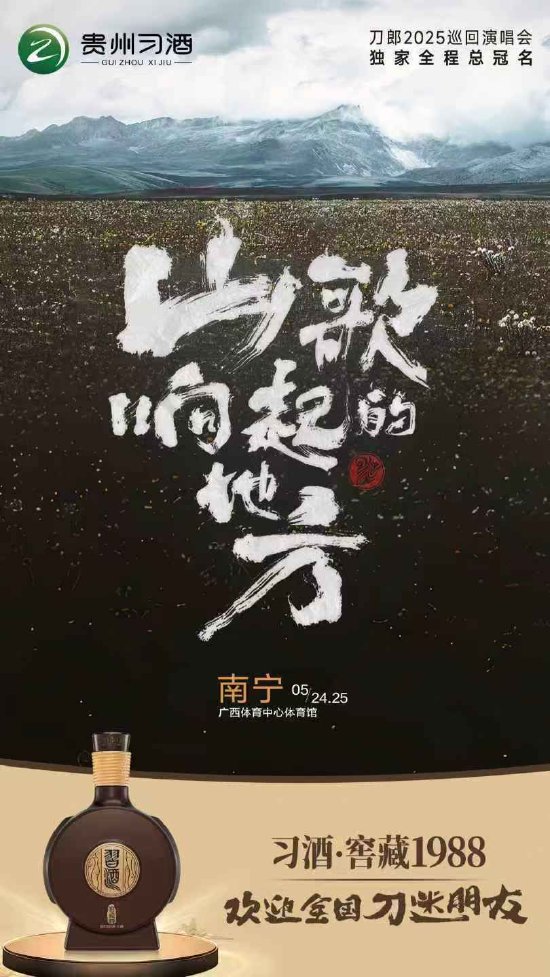 贵州习酒
GUI ZHOU XI JIU
刀郎2025巡回演唱会
独家全程总冠名
山歌
响起的
地方
南宁 05/24.25
广西体育中心体育馆
習酒
习酒·窖藏1988
欢迎全国刀迷朋友